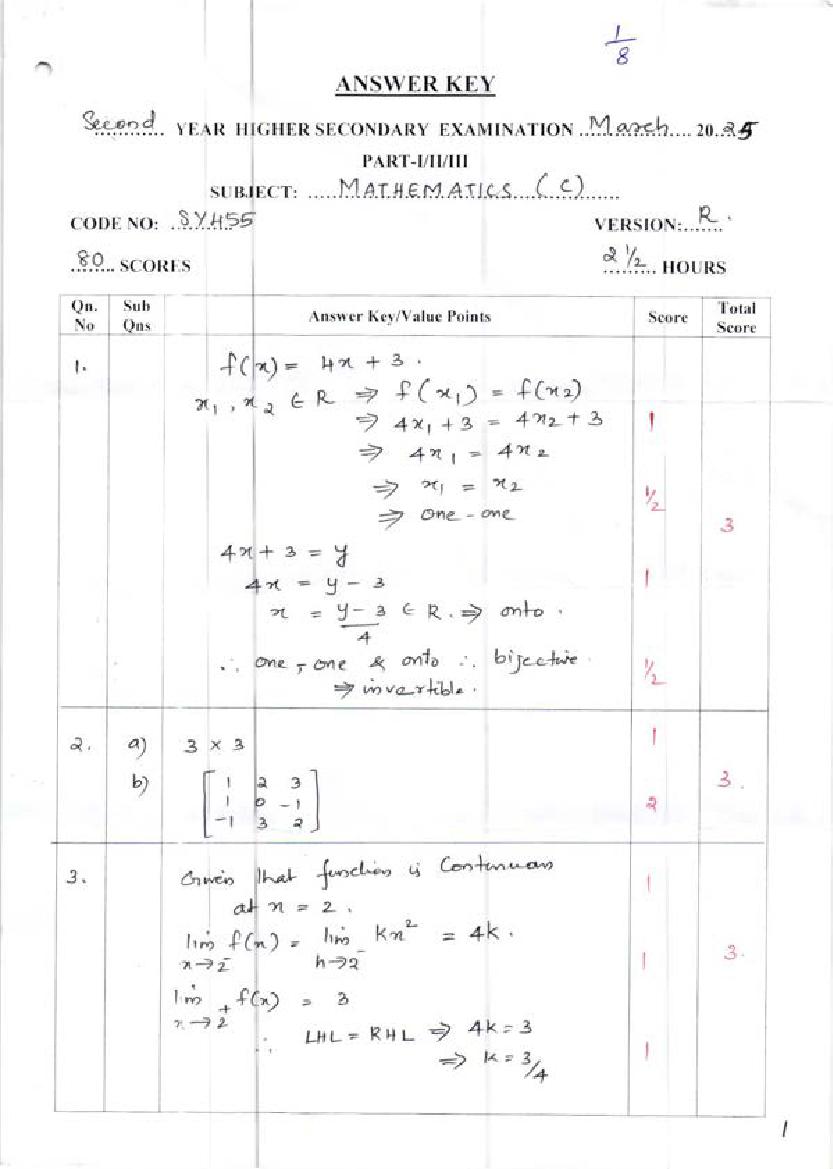 1/8
ANSWER KEY
Second YEAR HIGHER SECONDARY EXAMINATION March 2025
PART-I/II/III
SUBJECT: MATHEMATICS (C)
CODE NO: SY455 VERSION: R.
80 SCORES 2 1/2 HOURS
Qn. No Sub Qns Answer Key/Value Points Score Total Score
1. f(x) = 4x + 3.
x₁, x₂ ∈ R ⇒ f(x₁) = f(x₂)
⇒ 4x₁ + 3 = 4x₂ + 3 1
⇒ 4x₁ = 4x₂
⇒ x₁ = x₂ 1/2
⇒ one-one
3
4x + 3 = y
4x = y - 3 1
x = (y - 3)/4 ∈ R. ⇒ onto.
∴ one-one & onto ∴ bijective. 1/2
⇒ invertible.
2. a) 3 × 3 1
b) [ 1 2 3 3.
1 0 -1 2
-1 3 2 ]
3. Given that function is Continuous 1
at x = 2.
lim x→2⁻ f(x) = lim h→2⁻ Kx² = 4k. 1 3.
lim x→2⁺ f(x) = 3
∴ LHL = RHL ⇒ 4k = 3 1
⇒ k = 3/4
1